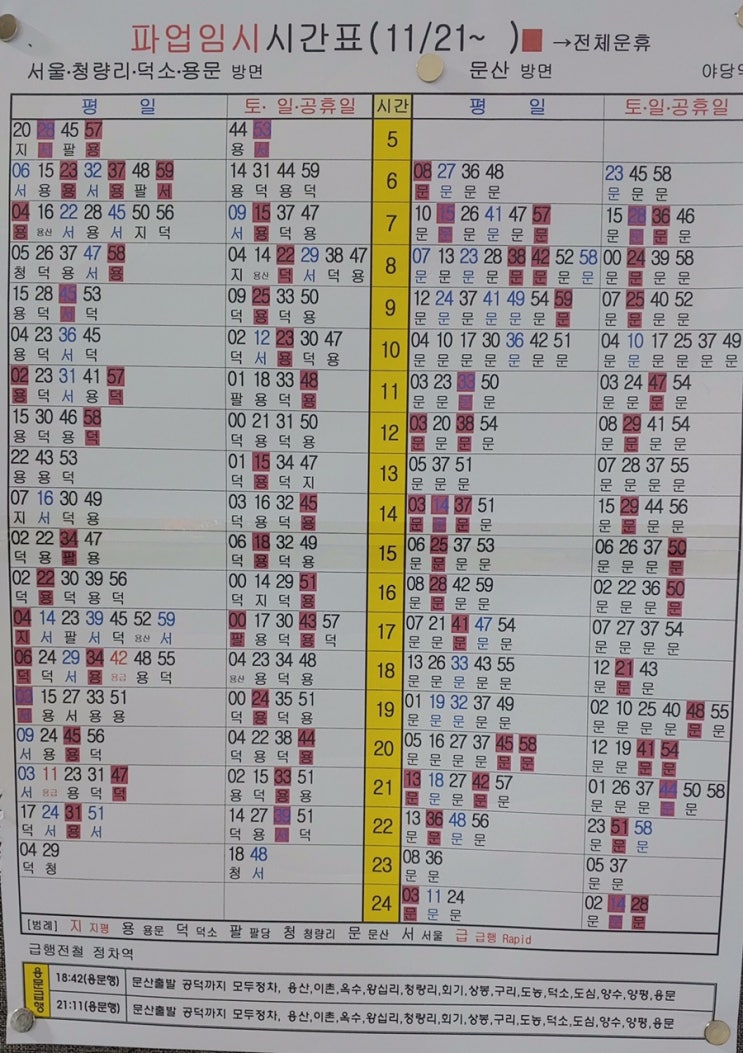 파업임시시간표(11/21~ )■→전체운휴
서울·청량리·덕소·용문 방면 문산 방면 야당역
평 일 토·일·공휴일 시간 평 일 토·일·공휴일
20 28 45 57 44 53 5
지 서 팔 용 용 서
06 15 23 32 37 48 59 14 31 44 59 6 08 27 36 48 23 45 58
서 용 용 서 용 팔 서 용 덕 용 덕 문 문 문 문 문 문 문
04 16 22 28 45 50 56 09 15 37 47 7 10 15 26 41 47 57 15 28 36 46
용 용산 서 용 서 지 덕 서 용 덕 용 문 문 문 문 문 문 문 문 문 문
05 26 37 47 58 04 14 22 29 38 47 8 07 13 23 28 38 42 52 58 00 24 39 58
청 덕 용 서 용 지 용산 덕 서 덕 용 문 문 문 문 문 문 문 문 문 문 문 문
15 28 45 53 09 25 33 50 9 12 24 37 41 49 54 59 07 25 40 52
용 덕 서 덕 덕 용 덕 용 문 문 문 문 문 문 문 문 문 문 문
04 23 36 45 02 12 23 30 47 10 04 10 17 30 36 42 51 04 10 17 25 37 49
용 덕 서 덕 덕 서 용 덕 용 문 문 문 문 문 문 문 문 문 문 문 문 문
02 23 31 41 57 01 18 33 48 11 03 23 33 50 03 24 47 54
용 덕 서 용 덕 팔 용 덕 용 문 문 문 문 문 문 문 문
15 30 46 58 00 21 31 50 12 03 20 38 54 08 29 41 54
용 덕 용 덕 덕 용 덕 용 문 문 문 문 문 문 문 문
22 43 53 01 15 34 47 13 05 37 51 07 28 37 55
용 용 덕 덕 용 덕 지 문 문 문 문 문 문 문
07 16 30 49 03 16 32 45 14 03 14 37 51 15 29 44 56
지 서 덕 용 덕 용 덕 용 문 문 문 문 문 문 문 문
02 22 34 47 06 18 32 49 15 06 25 37 53 06 26 37 50
덕 용 팔 용 덕 용 덕 용 문 문 문 문 문 문 문 문
02 22 30 39 56 00 14 29 51 16 08 28 42 59 02 22 36 50
덕 용 덕 용 덕 덕 지 덕 용 문 문 문 문 문 문 문 문
04 14 23 39 45 52 59 00 17 30 43 57 17 07 21 41 47 54 07 27 37 54
지 서 팔 서 덕 용산 서 팔 용 덕 용 덕 문 문 문 문 문 문 문 문 문
06 24 29 34 42 48 55 04 23 34 48 18 13 26 33 43 55 12 21 43
덕 덕 서 용 용급 용 덕 용산 용 덕 용 문 문 문 문 문 문 문 문
15 27 33 51 00 24 35 51 19 01 19 32 37 49 02 10 25 40 48 55
용 서 용 용 덕 용 덕 용 문 문 문 문 문 문 문 문 문 문 문
09 24 45 56 04 22 38 44 20 05 16 27 37 45 58 12 19 41 54
서 용 용 덕 덕 용 덕 용 문 문 문 문 문 문 문 문 문 문
03 11 23 31 47 02 15 33 51 21 13 18 27 42 57 01 26 37 44 50 58
서 용급 용 덕 덕 용 덕 용 용 문 문 문 문 문 문 문 문 문 문 문
17 24 31 51 14 27 39 51 22 13 36 48 56 23 51 58
덕 서 용 서 덕 용 서 덕 문 문 문 문 문 문 문
04 29 18 48 23 08 36 05 37
덕 청 청 서 문 문 문 문
24 03 11 24 02 14 28
문 문 문 문 문 문
[범례] 지 지평 용 용문 덕 덕소 팔 팔당 청 청량리 문 문산 서 서울 급 급행 Rapid
급행전철 정차역
용문급행 18:42(용문행) 문산출발 공덕까지 모두정차, 용산,이촌,옥수,왕십리,청량리,회기,상봉,구리,도농,덕소,도심,양수,양평,용문
21:11(용문행) 문산출발 공덕까지 모두정차, 용산,이촌,옥수,왕십리,청량리,회기,상봉,구리,도농,덕소,도심,양수,양평,용문